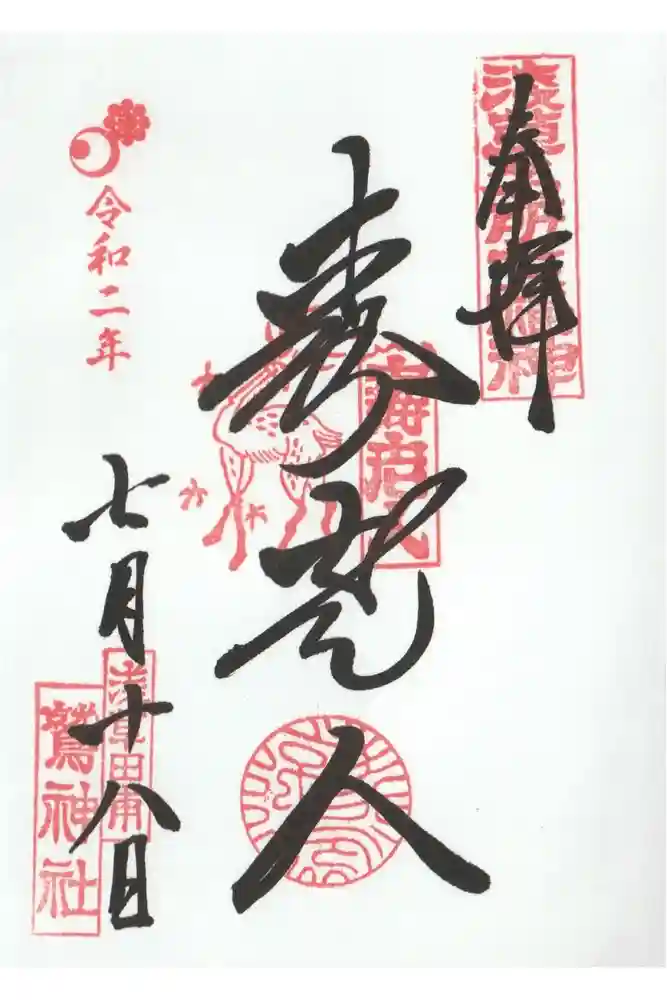 奉拝
浅草名所七福神
寿老人
壽老人
令和二年
七月十八日
浅草田甫
鷲神社